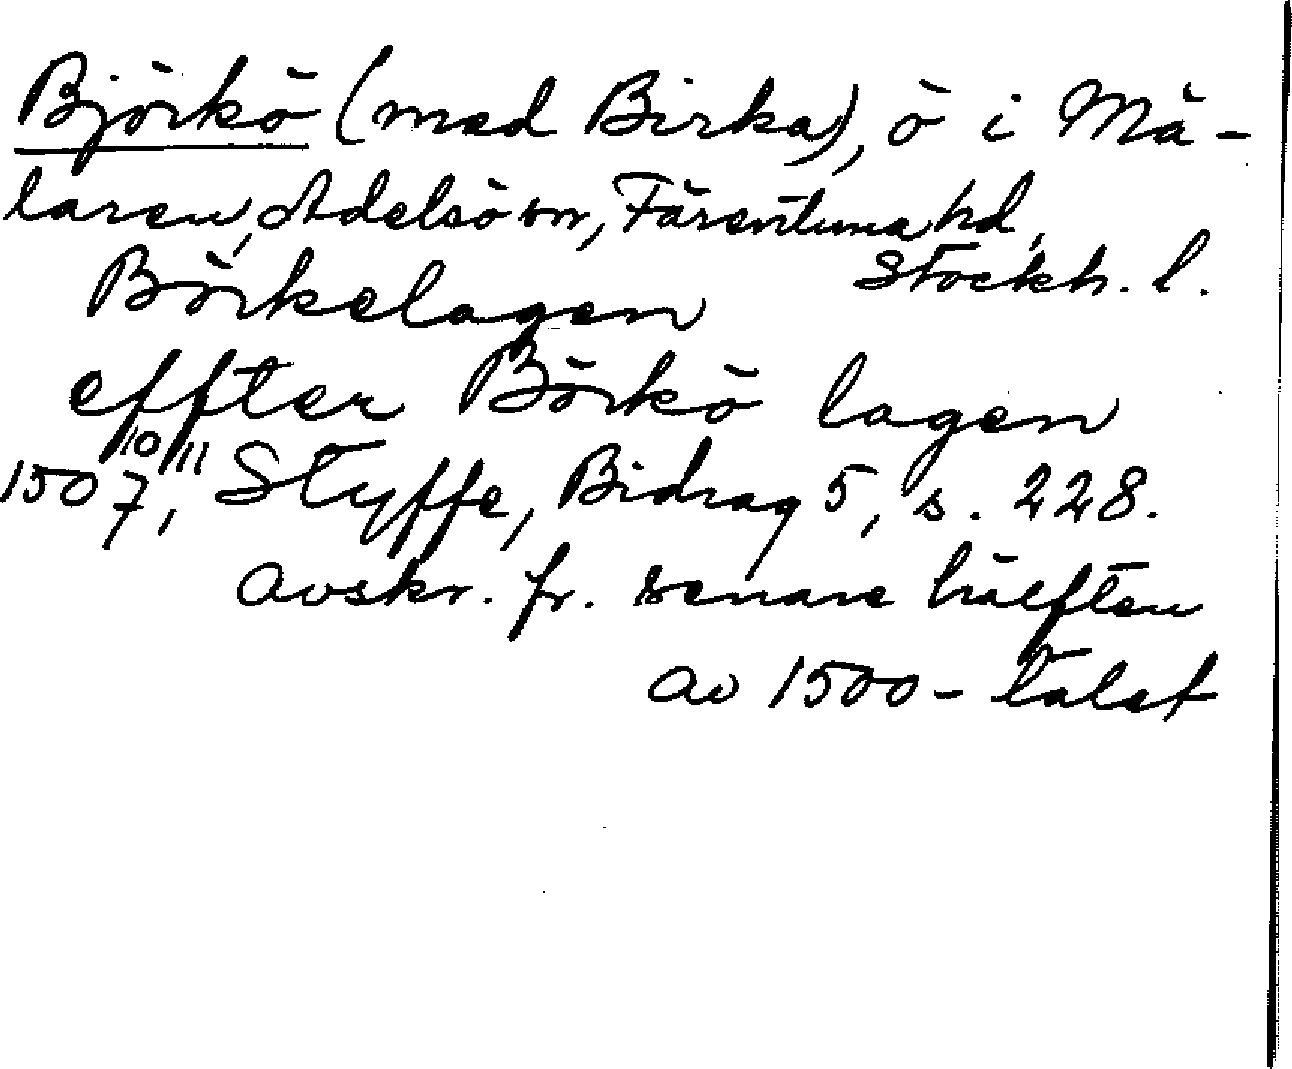 Björkö (med Birka), ö i Mä-
laren, Adelsö sn, Färentuna hd,
Stockh. l.
Börkelagen
effter Börkö lagen
1507 10/11, Styffe, Bidrag 5, s. 228.
avskr. fr. senare hälften
av 1500-talet